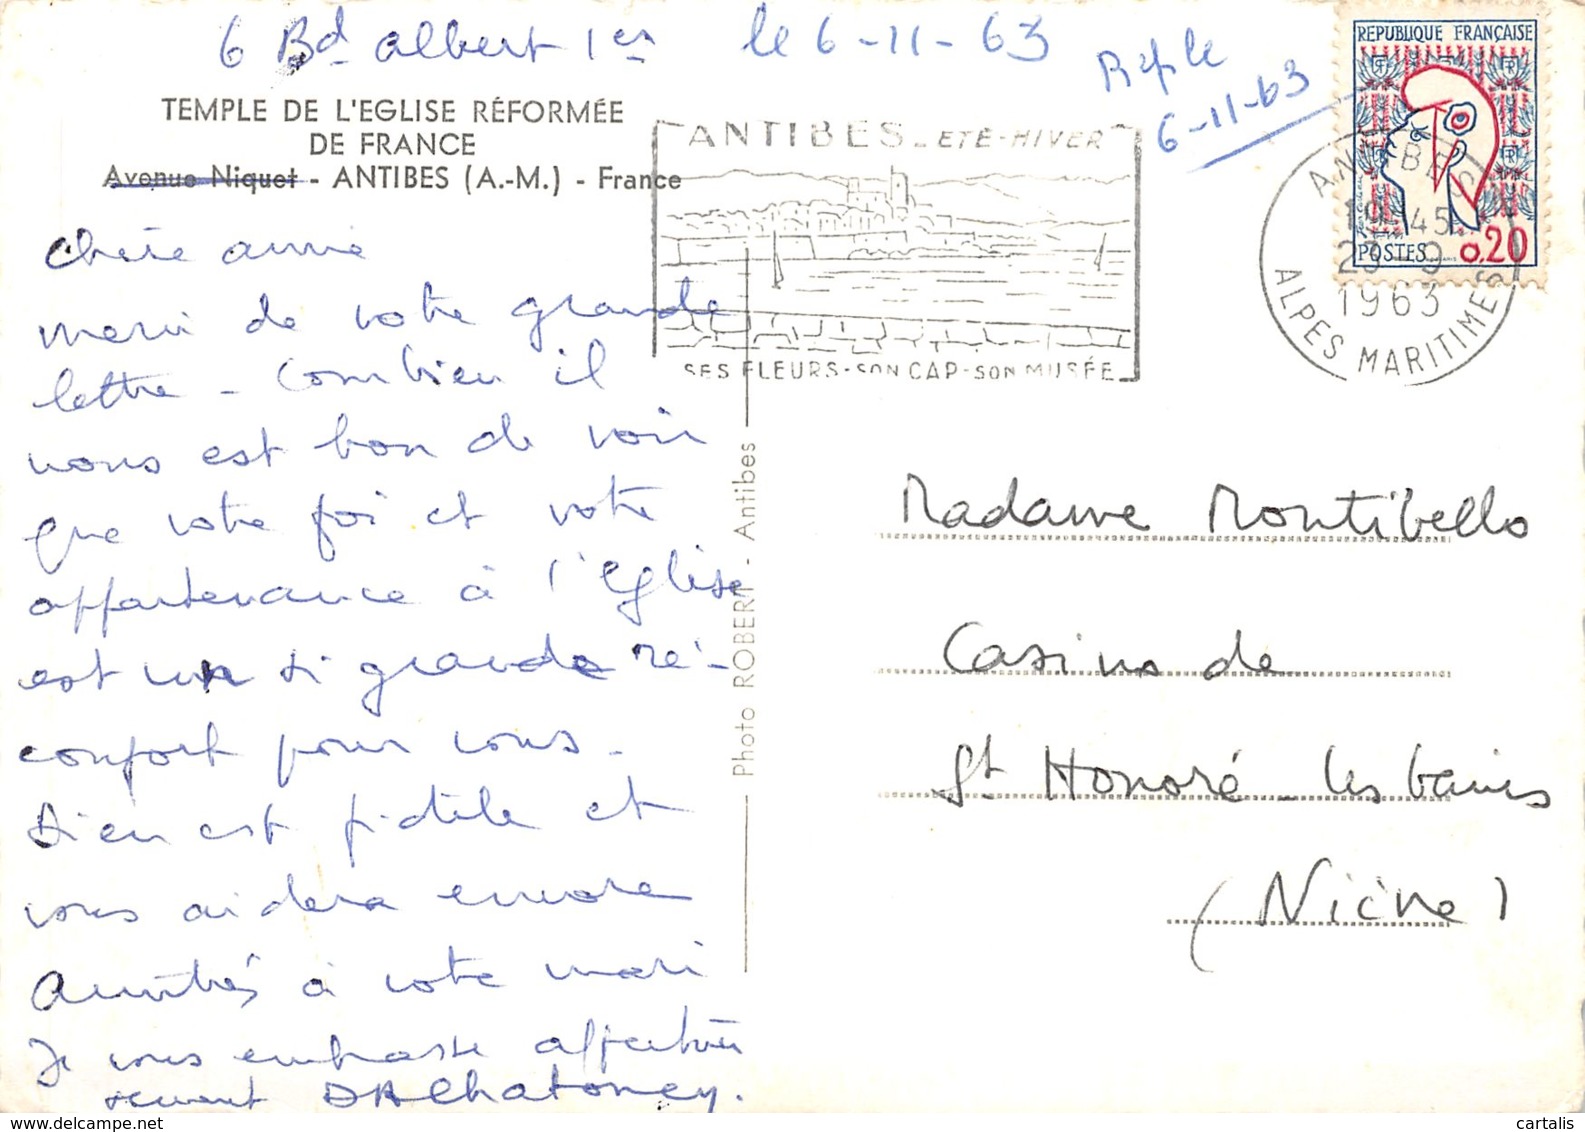 6 Bd albert 1er le 6-11-63
Rép le
6-11-63
TEMPLE DE L'EGLISE RÉFORMÉE
DE FRANCE
Avenue Niquet - ANTIBES (A.-M.) - France
ANTIBES - ETE-HIVER
SES FLEURS-SON CAP-SON MUSÉE
REPUBLIQUE FRANÇAISE
POSTES 0,20
ANTIBES
19-45
23-9
1963
ALPES MARITIMES
Chère amie
merci de votre grande
lettre - Combien il
nous est bon de voir
que votre foi et votre
appartenance à l'Eglise
est un si grand ré-
confort pour vous -
Dieu est fidèle et
vous aidera encore
Amitiés à votre mari
Je vous embrasse affectueu
sement DAChatoney.
Photo ROBERT - Antibes
Madame Montibello
Casino de
St Honoré - les bains
(Nièvre)
cartalis